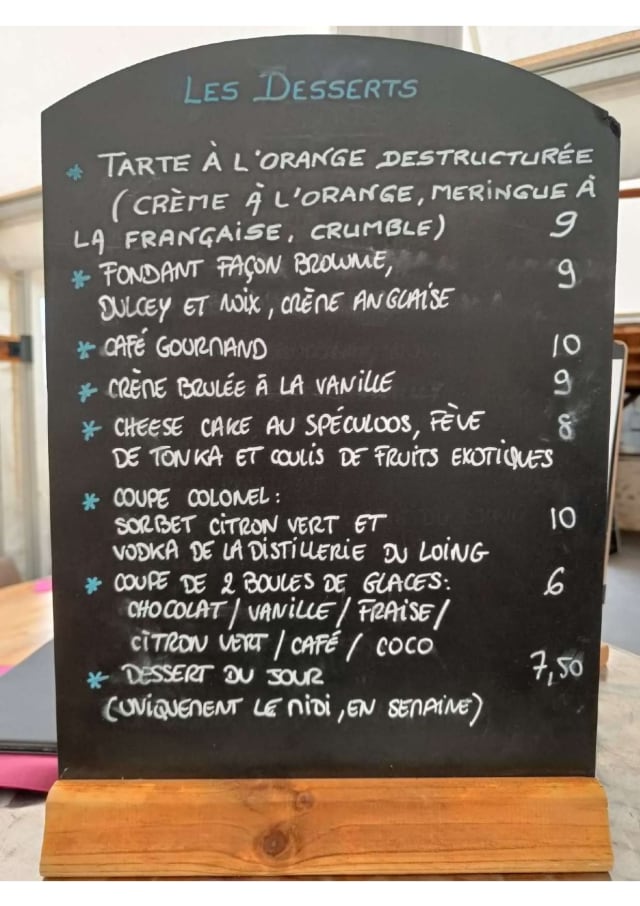 LES DESSERTS
* TARTE À L'ORANGE DESTRUCTURÉE
(CRÈME À L'ORANGE, MERINGUE À
LA FRANÇAISE, CRUMBLE) 9
* FONDANT FAÇON BROWNIE, 9
DULCEY ET NOIX, CRÈME ANGLAISE
* CAFÉ GOURMAND 10
* CRÈME BRULÉE À LA VANILLE 9
* CHEESE CAKE AU SPÉCULOOS, FÈVE 8
DE TONKA ET COULIS DE FRUITS EXOTIQUES
* COUPE COLONEL:
SORBET CITRON VERT ET 10
VODKA DE LA DISTILLERIE DU LOING
* COUPE DE 2 BOULES DE GLACES: 6
CHOCOLAT / VANILLE / FRAISE /
CITRON VERT / CAFÉ / COCO
* DESSERT DU JOUR 7,50
(UNIQUEMENT LE MIDI, EN SEMAINE)